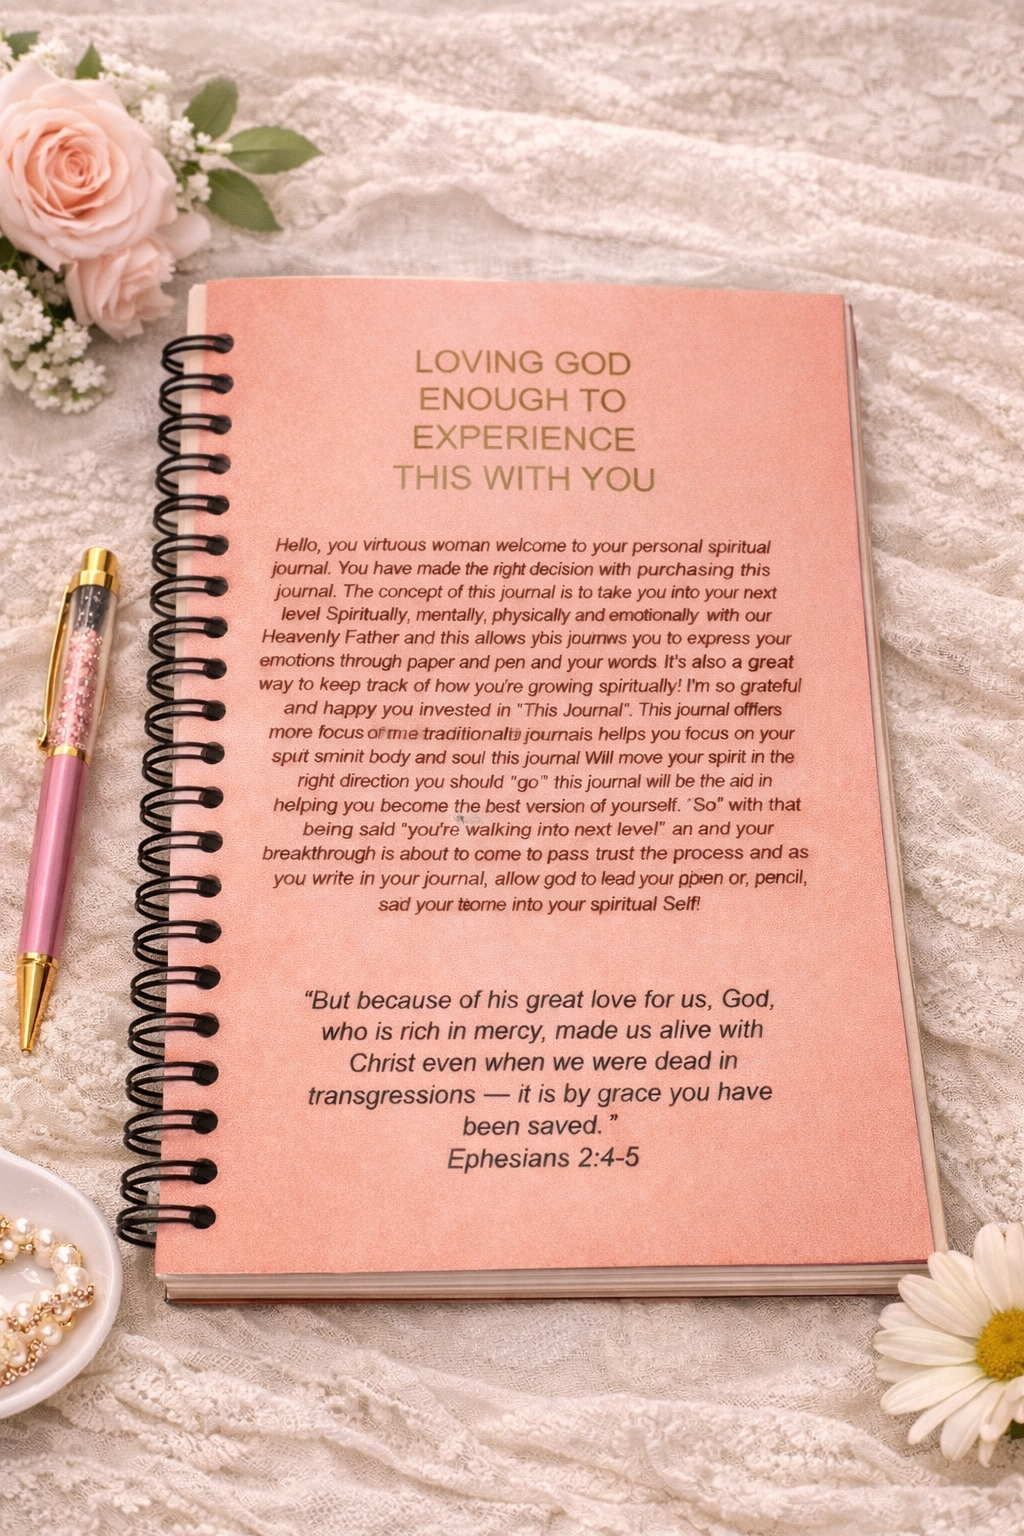 LOVING GOD
ENOUGH TO
EXPERIENCE
THIS WITH YOU
Hello, you virtuous woman welcome to your personal spiritual
journal. You have made the right decision with purchasing this
journal. The concept of this journal is to take you into your next
level Spiritually, mentally, physically and emotionally with our
Heavenly Father and this allows you to express your
emotions through paper and pen and your words It's also a great
way to keep track of how you're growing spiritually! I'm so grateful
and happy you invested in "This Journal". This journal offers
more focus hellps you focus on your
body and soul this journal Will move your spirit in the
right direction you should "go" this journal will be the aid in
helping you become the best version of yourself. "So" with that
being said "you're walking into next level" an and your
breakthrough is about to come to pass trust the process and as
you write in your journal, allow god to lead your or, pencil,
sad your into your spiritual Self!
“But because of his great love for us, God,
who is rich in mercy, made us alive with
Christ even when we were dead in
transgressions — it is by grace you have
been saved. ”
Ephesians 2:4-5